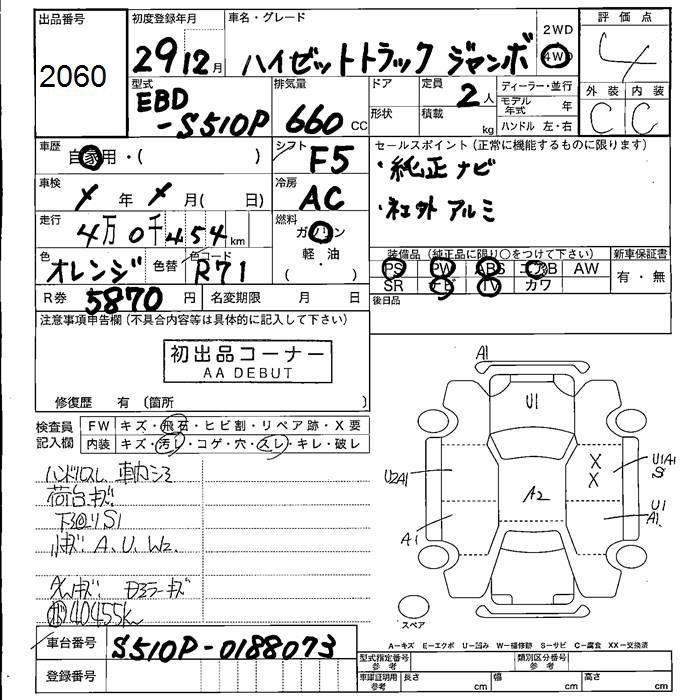 出品番号 初度登録年月 車名・グレード 2WD 評価点
2060 29 12月 ハイゼットトラック ジャンボ 4WD 4
型式 排気量 ドア 定員 ディーラー・並行 外装 内装
EBD 形状 積載 2人 モデル年式 年 C C
-S510P 660cc kg ハンドル 左・右
車歴 自家用・( ) シフト F5 セールスポイント(正常に機能するものに限ります)
・純正ナビ
車検 年 月( 日) 冷房 AC
・社外アルミ
走行 4万0千454km 燃料 ガソリン
軽・油
( )
色 オレンジ 色替 色コード R71
装備品(純正品に限り○をつけて下さい) 新車保証書
PS PW ABS エアB AW 有・無
SR ナビ TV カワ
R券 5870円 名変期限 月 日 後日品
注意事項申告欄(不具合内容等は具体的に記入して下さい)
初出品コーナー
AA DEBUT
修復歴 有(箇所 )
検査員 FW キズ・飛石・ヒビ割・リペア跡・X要
記入欄 内装 キズ・汚レ・コゲ・穴・スレ・キレ・破レ
ハンドルスレ 車内シミ
荷台キズ
下廻りS1
小キズ A、U、W2、
ミラーキズ
40455k
A1
U1
U2A1
X
X
U1A1
S
A2
A1
U1
A1
スペア
A-キズ E-エクボ U-凹み W-補修跡 S-サビ C-腐食 XX-交換済
車台番号 S510P-0188073
登録番号
型式指定番号 参考 類別区分番号 参考
車庫証明用 参考 長さ cm 幅 cm 高さ cm